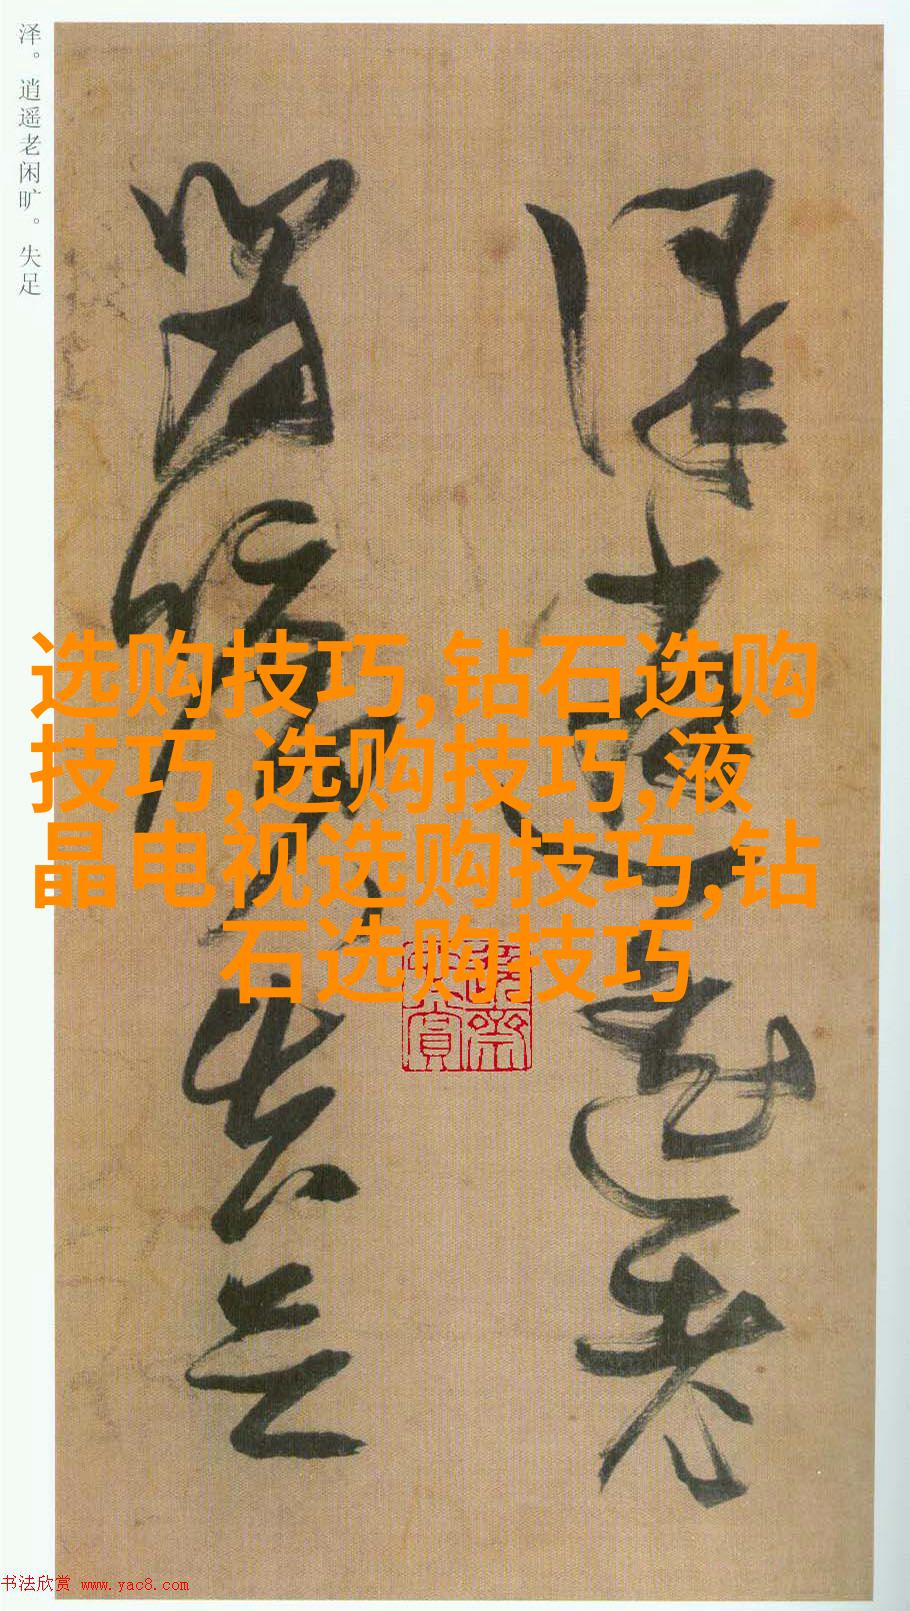 泽。逍遥老闲旷。失足
泽逍遥老
闲旷失足
选购技巧,钻石选购
技巧,选购技巧,液
晶电视选购技巧,钻
石选购技巧
书法欣赏 www.yac8.com